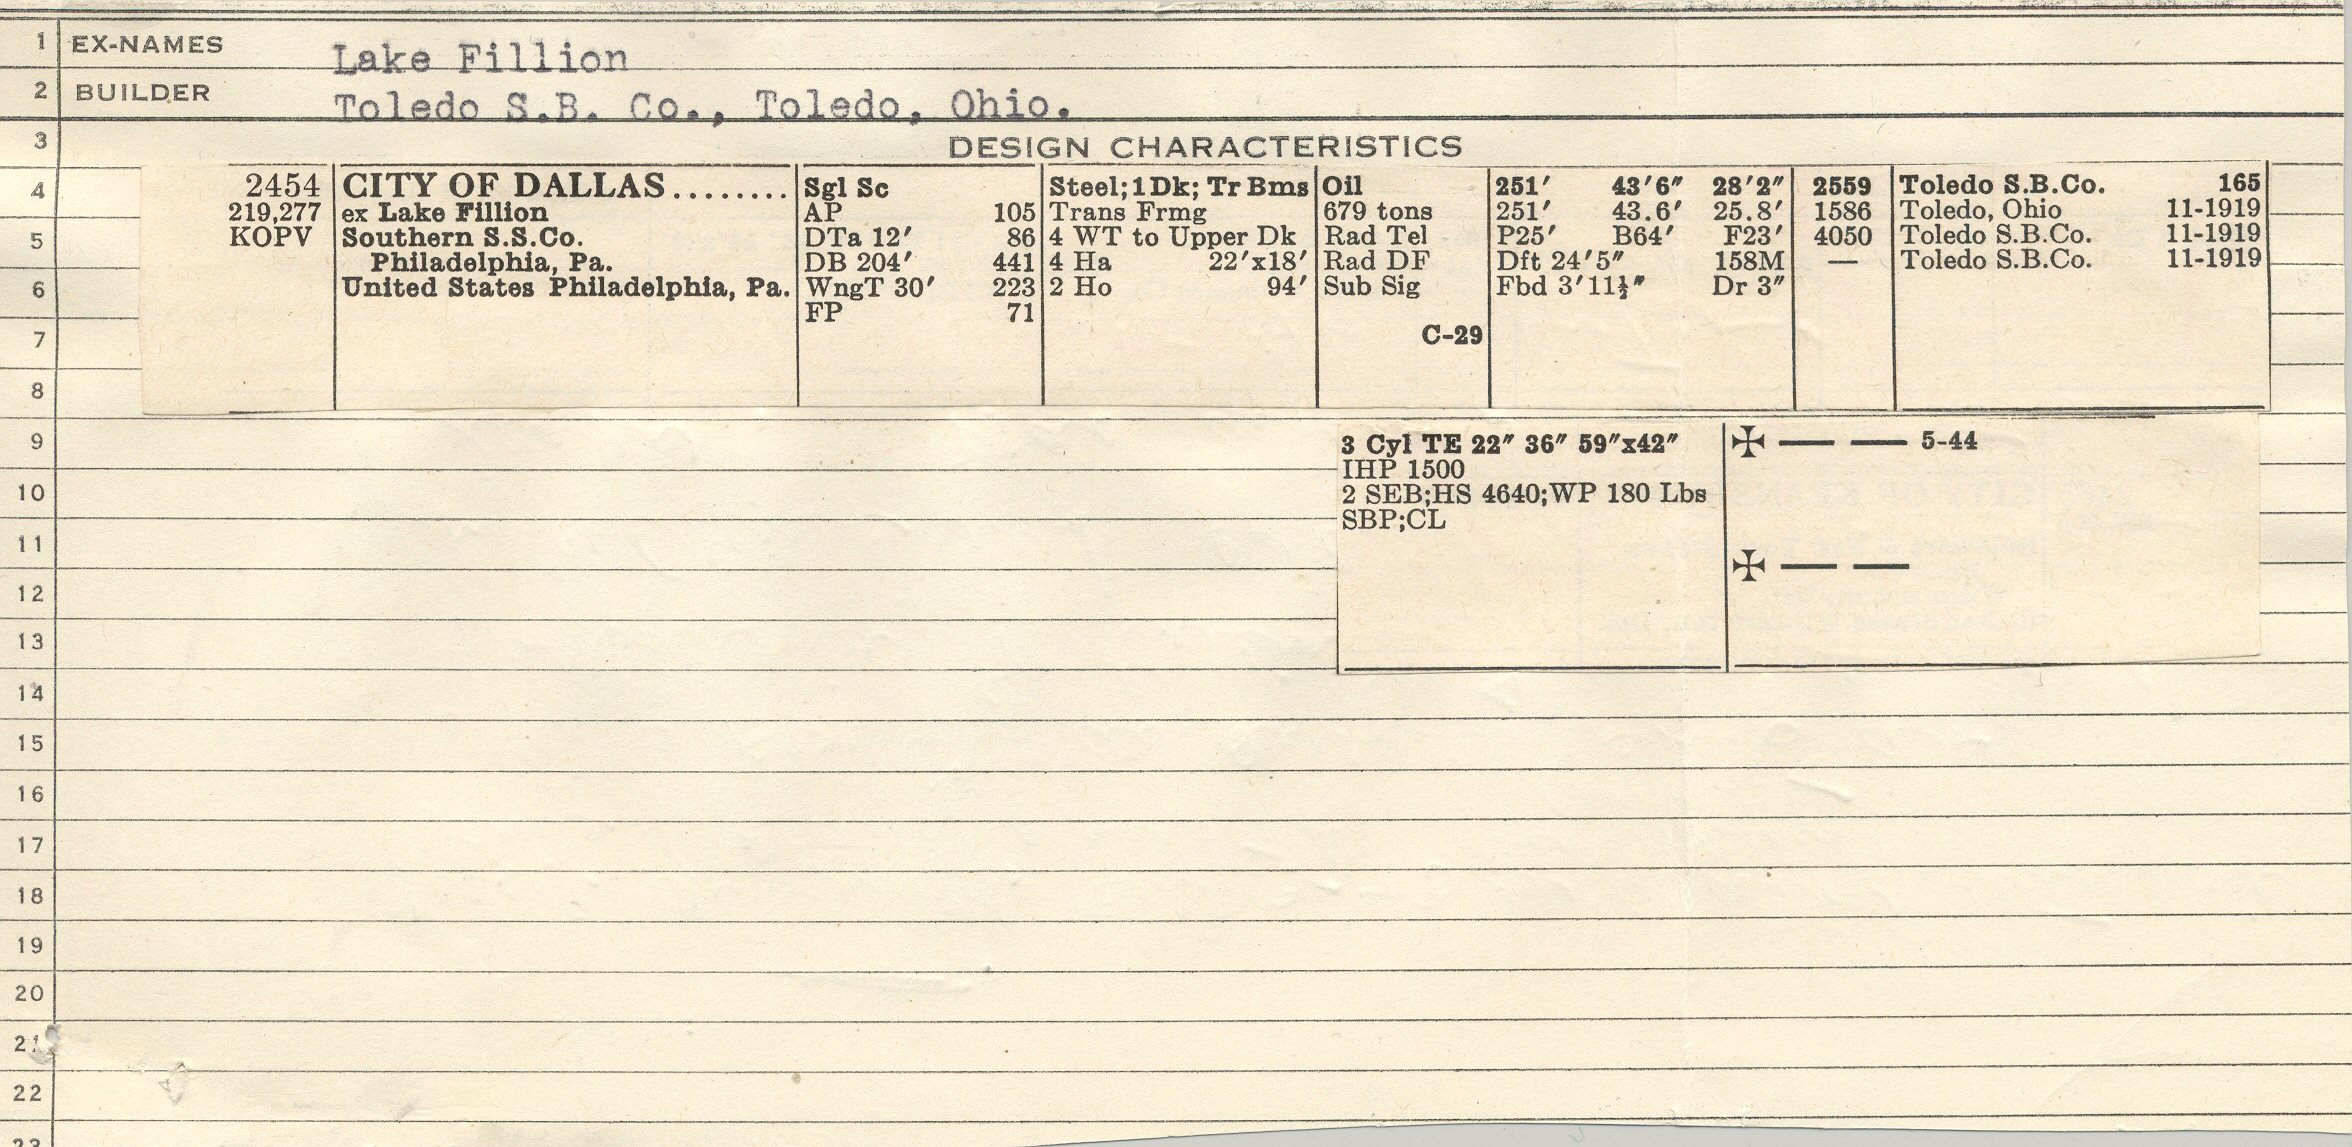 1 EX-NAMES Lake Fillion
2 BUILDER Toledo S.B. Co., Toledo, Ohio.
3 DESIGN CHARACTERISTICS
4 2454 CITY OF DALLAS........ Sgl Sc Steel; 1 Dk; Tr Bms Oil 251′ 43′6″ 28′2″ 2559 Toledo S.B.Co. 165
219,277 ex Lake Fillion AP 105 Trans Frmg 679 tons 251′ 43.6′ 25.8′ 1586 Toledo, Ohio 11-1919
5 KOPV Southern S.S.Co. DTa 12′ 86 4 WT to Upper Dk Rad Tel P25′ B64′ F23′ 4050 Toledo S.B.Co. 11-1919
Philadelphia, Pa. DB 204′ 441 4 Ha 22′x18′ Rad DF Dft 24′5″ 158M — Toledo S.B.Co. 11-1919
6 United States Philadelphia, Pa. WngT 30′ 223 2 Ho 94′ Sub Sig Fbd 3′11½″ Dr 3″
FP 71
7 C-29
8
9 3 Cyl TE 22″ 36″ 59″x42″ ✠ — — 5-44
IHP 1500
10 2 SEB;HS 4640;WP 180 Lbs
SBP;CL
11 ✠ — —
12
13
14
15
16
17
18
19
20
21
22
23